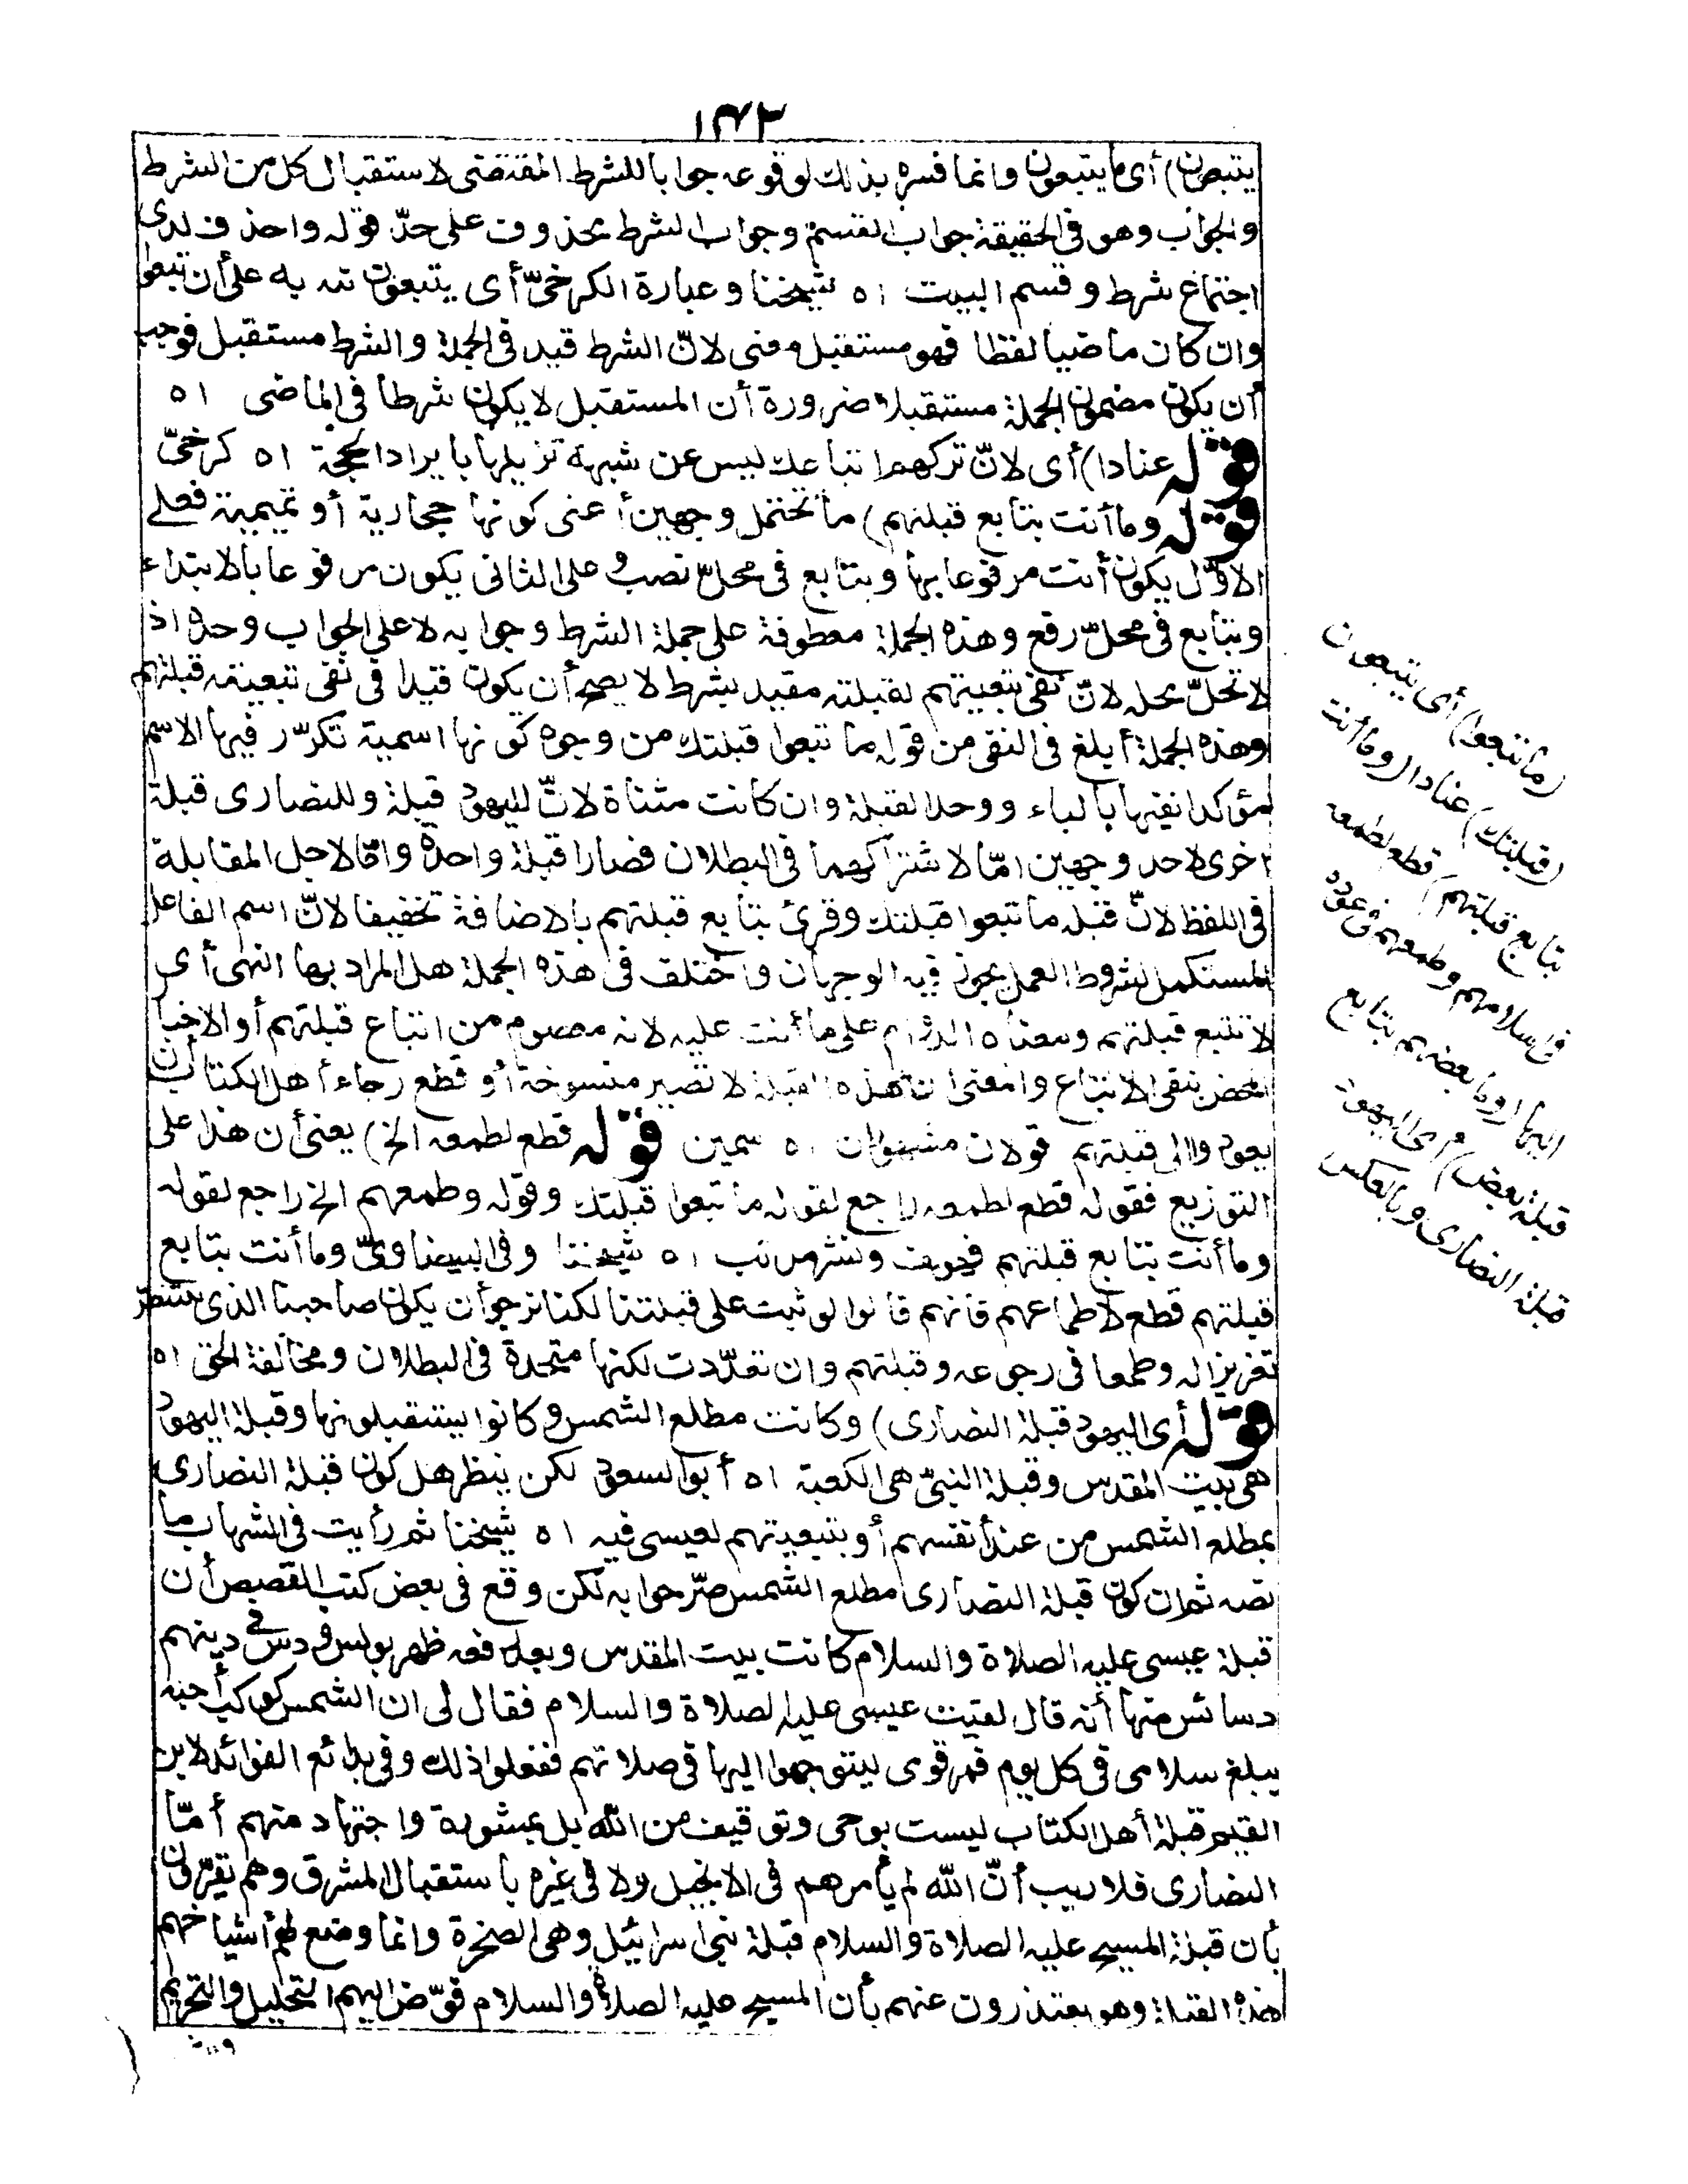 ١٤٢
يتبعون) أى ما يتبعون وانما فسره بذلك لوقوعه جوابا للشرط المقتضى لاستقبال كل من الشرط
والجواب وهو فى الحقيقة جواب القسم وجواب الشرط محذوف على حدّ قوله واحذف لدى
اجتماع شرط وقسم البيت اه شيخنا وعبارة الكرخىّ أى يتبعون نبه به على أن تبعوا
وان كان ماضيا لفظا فهو مستقبل معنى لانّ الشرط قيد فى الجملة والشرط مستقبل فوجب
أن يكون مضمون الجملة مستقبلا ضرورة أن المستقبل لا يكون شرطا فى الماضى اه
قوله عنادا) أى لانّ تركهم اتباعك ليس عن شبهة تزيلها بايراد الحجة اه كرخىّ
قوله وما أنت بتابع قبلتهم) ما تحتمل وجهين أعنى كونها حجازية أو تميمية فعلى
الاوّل يكون أنت مرفوعا بها وبتابع فى محلّ نصب وعلى الثانى يكون مرفوعا بالابتداء
وبتابع فى محلّ رفع وهذه الجملة معطوفة على جملة الشرط وجوابه لا على الجواب وحده اذ
لا تحلّ محله لانّ نفى تبعيتهم لقبلته مقيد بشرط لا يصح أن يكون قيدا فى نفى تبعيته قبلتهم
وهذه الجملة أبلغ فى النفى من قوله ما تبعوا قبلتك من وجوه كونها اسمية تكرّر فيها الاسم
مؤكدا نفيها بالباء ووحد القبلة وان كانت مثناة لانّ لليهود قبلة وللنصارى قبلة
اخرى لاحد وجهين امّا لاشتراكهما فى البطلان فصارا قبلة واحدة وامّا لاجل المقابلة
فى اللفظ لانّ قبله ما تبعوا قبلتك وقرئ بتابع قبلتهم بالاضافة تخفيفا لانّ اسم الفاعل
المستكمل لشروط العمل يجوز فيه الوجهان واختلف فى هذه الجملة هل المراد بها النهى أى
لا تتبع قبلتهم ومعناه الدوام على ما أنت عليه لانه معصوم من اتباع قبلتهم أو الاخبار
المحض بنفى الاتباع والمعنى ان هذه القبلة لا تصير منسوخة أو قطع رجاء أهل الكتاب أن
يعودوا الى قبلتهم قولان مشهوران اه سمين قوله قطع لطمعه الخ) يعنى أن هذا على
التوزيع فقوله قطع لطمعه راجع لقوله ما تبعوا قبلتك وقوله وطمعهم الخ راجع لقوله
وما أنت بتابع قبلتهم فهو لف ونشر مرتب اه شيخنا وفى البيضاوىّ وما أنت بتابع
قبلتهم قطع لاطماعهم فانهم قالوا لو ثبت على قبلتنا لكنا نرجو أن يكون صاحبنا الذى ننتظره
تغريرا له وطمعا فى رجوعه وقبلتهم وان تعدّدت لكنها متحدة فى البطلان ومخالفة الحق اه
قوله أى اليهود قبلة النصارى) وكانت مطلع الشمس وكانوا يستقبلونها وقبلة اليهود
هى بيت المقدس وقبلة النبىّ هى الكعبة اه أبو السعود لكن ينظر هل كون قبلة النصارى
بمطلع الشمس من عند أنفسهم أو بتبعيتهم لعيسى فيه اه شيخنا ثم رأيت فى الشهاب ما
نصه ثم ان كون قبلة النصارى مطلع الشمس صرّحوا به لكن وقع فى بعض كتب القصص أن
قبلة عيسى عليه الصلاة والسلام كانت بيت المقدس وبعد رفعه ظهر بولس ودس فى دينهم
دسائس منها أنه قال لقيت عيسى عليه الصلاة والسلام فقال لى ان الشمس كوكب أحبه
يبلغ سلامى فى كل يوم فمر قومى ليتوجهوا اليها فى صلاتهم ففعلوا ذلك وفى بدائع الفوائد لابن
القيم قبلة أهل الكتاب ليست بوحى وتوقيف من الله بل بمشورة واجتهاد منهم أمّا
النصارى فلا ريب أنّ الله لم يأمرهم فى الانجيل ولا فى غيره باستقبال المشرق وهم يقرّون
بأن قبلة المسيح عليه الصلاة والسلام قبلة بنى اسرائيل وهى الصخرة وانما وضع لهم أشياخهم
هذه القبلة وهم يعتذرون عنهم بأن المسيح عليه الصلاة والسلام فوّض اليهم التحليل والتحريم
(ما تبعوا) أى يتبعون
(قبلتك) عنادا (وما أنت
بتابع قبلتهم) قطع لطمعه
فى اسلامهم وطمعهم فى عوده
اليها (وما بعضهم بتابع
قبلة بعض) أى اليهود
قبلة النصارى وبالعكس